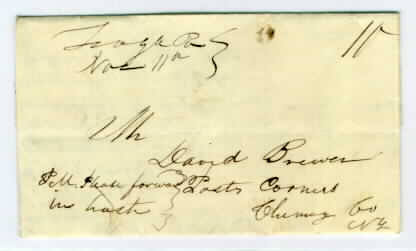 Tioga Pa
Nov 11th
Mr
David Brewer
Posts Corners
P.M. Please forward
in haste
Chemung Co
NY